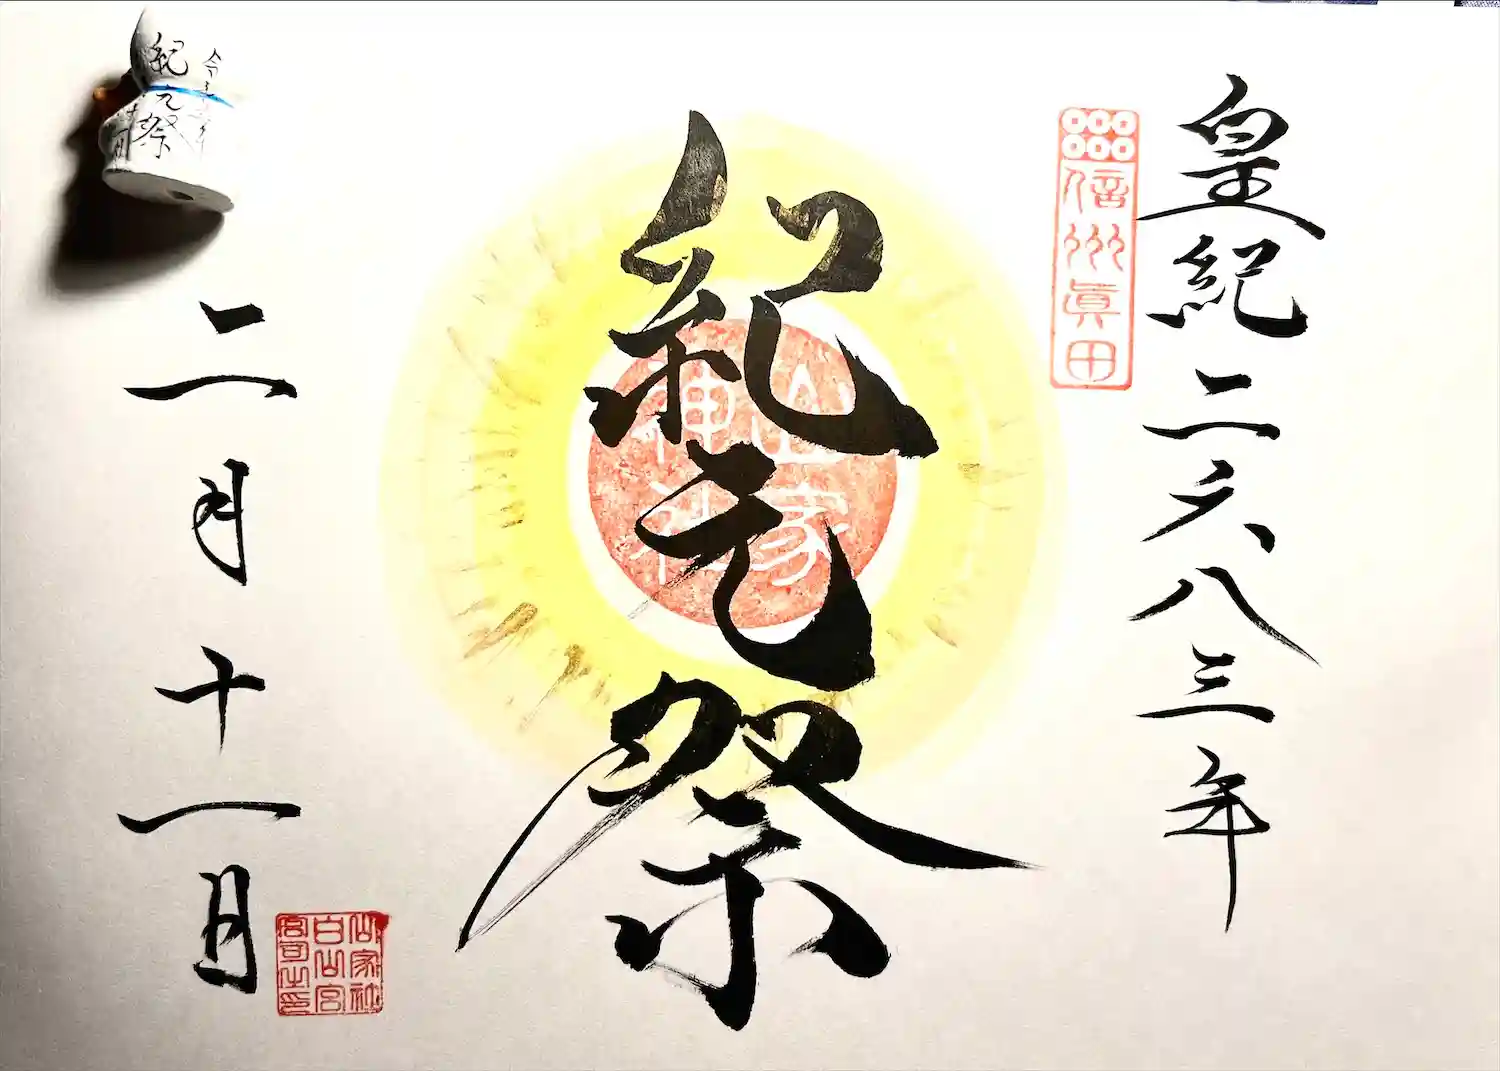 皇紀二六八三年
信州眞田
紀元祭
山家神社
二月十一日
山家社
白山宮
宮司之印
紀元祭